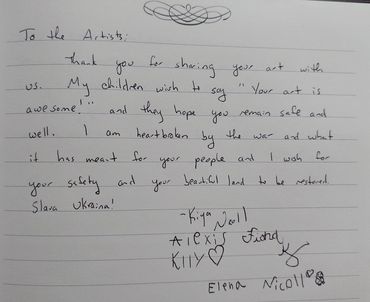 To the Artists:
Thank you for sharing your art with
us. My children wish to say "Your art is
awesome!" and they hope you remain safe and
well. I am heartbroken by the war and what
it has meant for your people and I wish for
your safety and your beautiful land to be restored.
Slava Ukraina!
-Kiya Nicoll
Alexis Fiona
Killy♡
Elena Nicoll♡